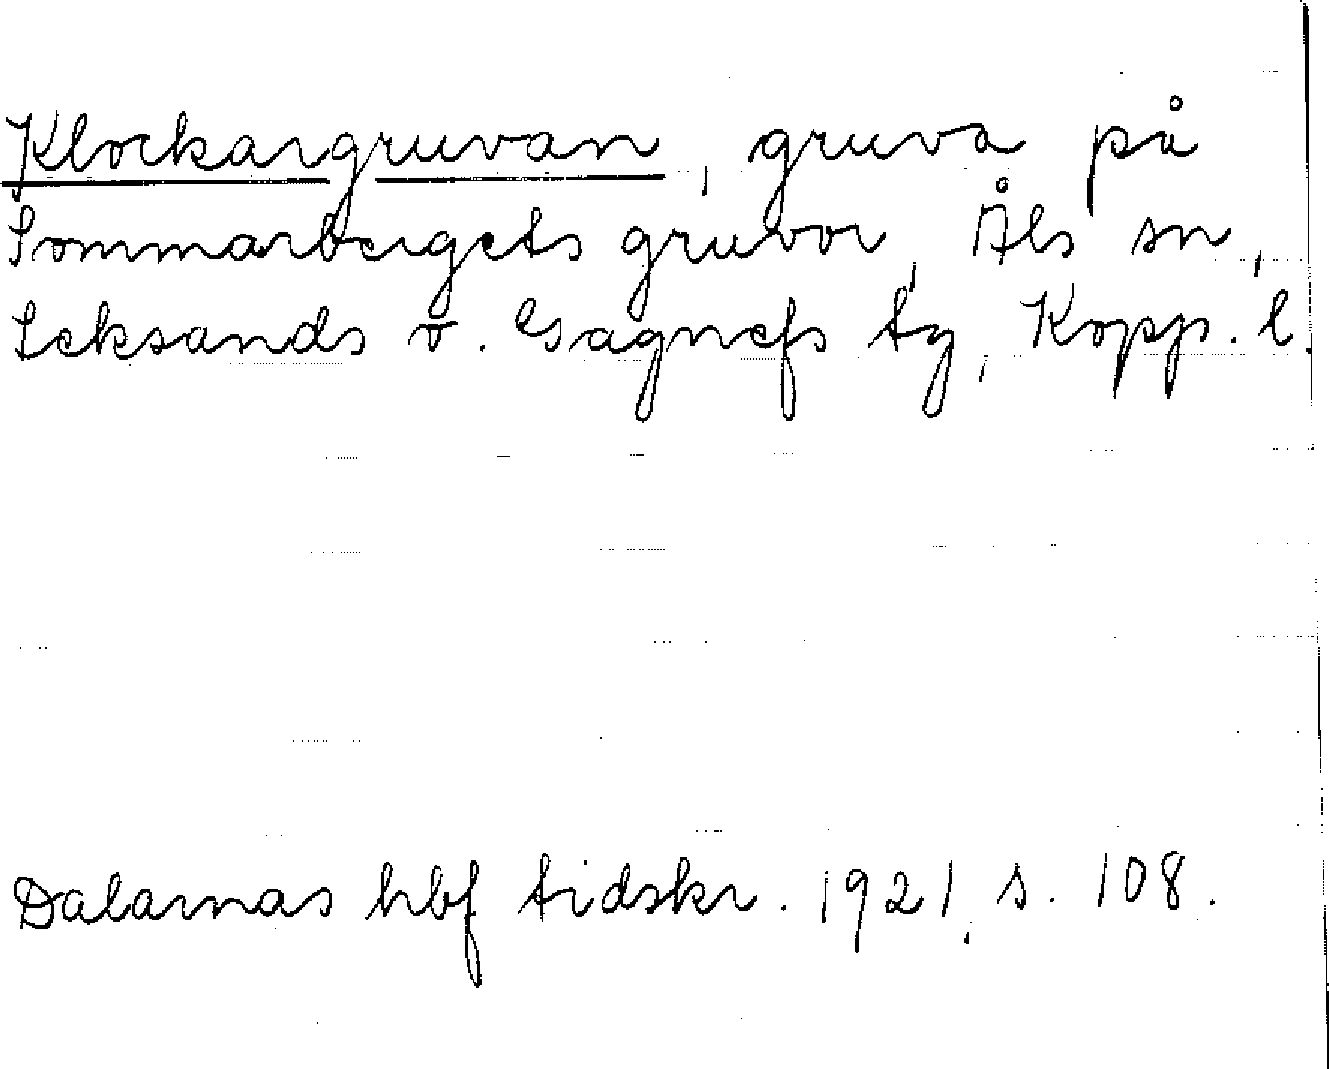 Klockargruvan, gruva på
Sommarbergets gruvor, Åls sn,
Leksands o. Gagnefs tg, Kopp. l.
Dalarnas hbf tidskr. 1921, s. 108.